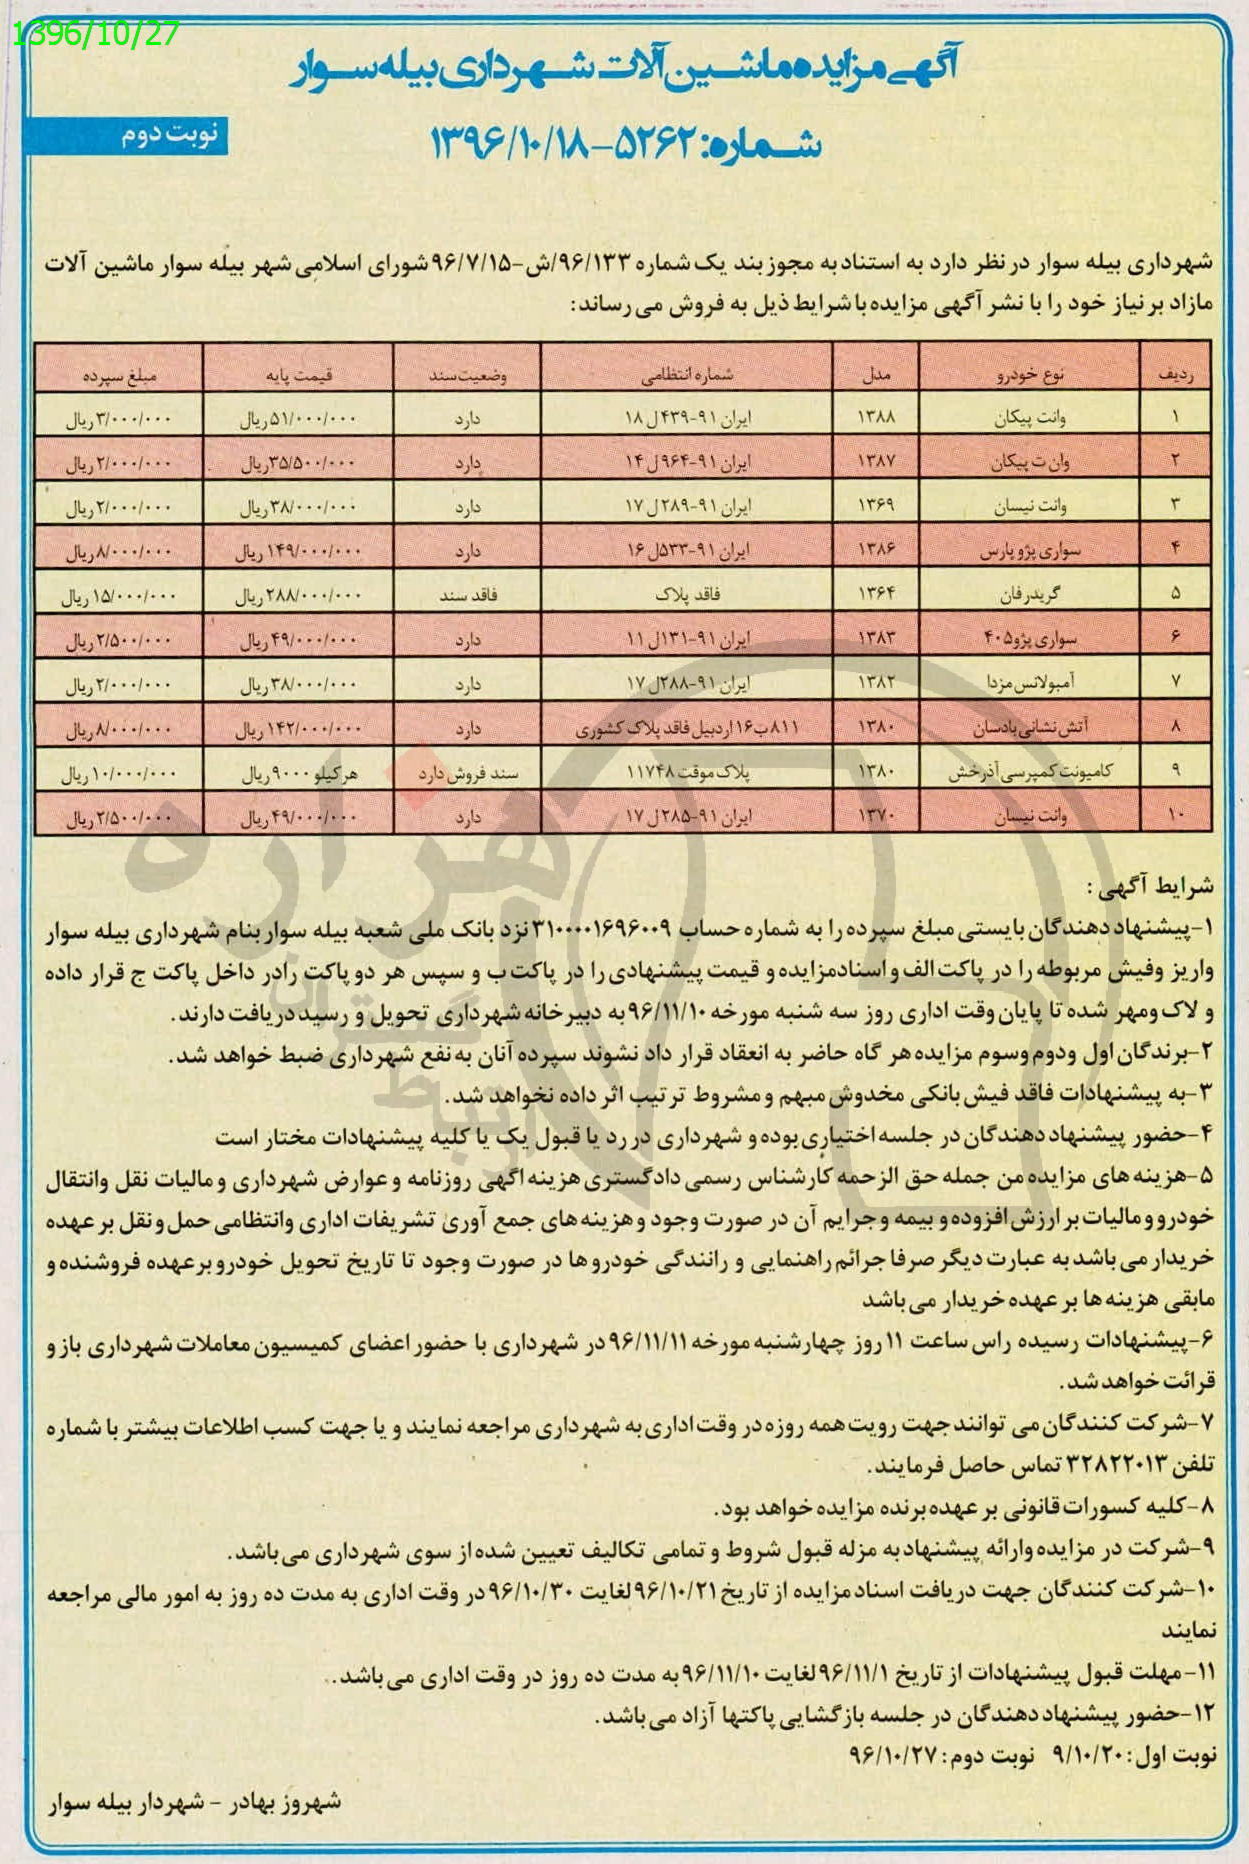 1396/10/27
آگهی مزایده ماشین آلات شهرداری بیله سوار
شماره: ۵۲۶۲-۱۳۹۶/۱۰/۱۸
نوبت دوم
شهرداری بیله سوار در نظر دارد به استناد به مجوز بند یک شماره ۹۶/۱۳۳/ش-۹۶/۷/۱۵ شورای اسلامی شهر بیله سوار ماشین آلات
مازاد بر نیاز خود را با نشر آگهی مزایده با شرایط ذیل به فروش می رساند:
ردیف نوع خودرو مدل شماره انتظامی وضعیت سند قیمت پایه مبلغ سپرده
۱ وانت پیکان ۱۳۸۸ ایران ۹۱-۴۳۹ل ۱۸ دارد ۵۱/۰۰۰/۰۰۰ ریال ۳/۰۰۰/۰۰۰ ریال
۲ وان ت پیکان ۱۳۸۷ ایران ۹۱-۹۶۴ل ۱۴ دارد ۳۵/۵۰۰/۰۰۰ریال ۲/۰۰۰/۰۰۰ ریال
۳ وانت نیسان ۱۳۶۹ ایران ۹۱-۲۸۹ل ۱۷ دارد ۳۸/۰۰۰/۰۰۰ ریال ۲/۰۰۰/۰۰۰ ریال
۴ سواری پژو پارس ۱۳۸۶ ایران ۹۱-۵۳۳ل ۱۶ دارد ۱۴۹/۰۰۰/۰۰۰ ریال ۸/۰۰۰/۰۰۰ ریال
۵ گریدر فان ۱۳۶۴ فاقد پلاک فاقد سند ۲۸۸/۰۰۰/۰۰۰ ریال ۱۵/۰۰۰/۰۰۰ ریال
۶ سواری پژو۴۰۵ ۱۳۸۳ ایران ۹۱-۱۳۱ل ۱۱ دارد ۴۹/۰۰۰/۰۰۰ ریال ۲/۵۰۰/۰۰۰ ریال
۷ آمبولانس مزدا ۱۳۸۲ ایران ۹۱-۲۸۸ل ۱۷ دارد ۳۸/۰۰۰/۰۰۰ ریال ۲/۰۰۰/۰۰۰ ریال
۸ آتش نشانی بادسان ۱۳۸۰ ۸۱۱ب۱۶ اردبیل فاقد پلاک کشوری دارد ۱۴۲/۰۰۰/۰۰۰ ریال ۸/۰۰۰/۰۰۰ ریال
۹ کامیونت کمپرسی آذرخش ۱۳۸۰ پلاک موقت ۱۱۷۴۸ سند فروش دارد هرکیلو ۹۰۰۰ ریال ۱۰/۰۰۰/۰۰۰ ریال
۱۰ وانت نیسان ۱۳۷۰ ایران ۹۱-۲۸۵ل ۱۷ دارد ۴۹/۰۰۰/۰۰۰ ریال ۲/۵۰۰/۰۰۰ ریال
شرایط آگهی :
۱-پیشنهاد دهندگان بایستی مبلغ سپرده را به شماره حساب ۳۱۰۰۰۰۱۶۹۶۰۰۹ نزد بانک ملی شعبه بیله سوار بنام شهرداری بیله سوار
واریز وفیش مربوطه را در پاکت الف و اسناد مزایده و قیمت پیشنهادی را در پاکت ب و سپس هر دو پاکت رادر داخل پاکت ج قرار داده
و لاک ومهر شده تا پایان وقت اداری روز سه شنبه مورخه ۹۶/۱۱/۱۰ به دبیرخانه شهرداری تحویل و رسید دریافت دارند.
۲-برندگان اول ودوم وسوم مزایده هر گاه حاضر به انعقاد قرار داد نشوند سپرده آنان به نفع شهرداری ضبط خواهد شد.
۳-به پیشنهادات فاقد فیش بانکی مخدوش مبهم و مشروط ترتیب اثر داده نخواهد شد.
۴-حضور پیشنهاد دهندگان در جلسه اختیاری بوده و شهرداری در رد یا قبول یک یا کلیه پیشنهادات مختار است
۵-هزینه های مزایده من جمله حق الزحمه کارشناس رسمی دادگستری هزینه اگهی روزنامه و عوارض شهرداری و مالیات نقل وانتقال
خودرو و مالیات بر ارزش افزوده و بیمه و جرایم آن در صورت وجود و هزینه های جمع آوری تشریفات اداری وانتظامی حمل و نقل بر عهده
خریدار می باشد به عبارت دیگر صرفا جرائم راهنمایی و رانندگی خودرو ها در صورت وجود تا تاریخ تحویل خودرو بر عهده فروشنده و
مابقی هزینه ها بر عهده خریدار می باشد
۶-پیشنهادات رسیده راس ساعت ۱۱ روز چهارشنبه مورخه ۹۶/۱۱/۱۱ در شهرداری با حضور اعضای کمیسیون معاملات شهرداری باز و
قرائت خواهد شد.
۷-شرکت کنندگان می توانند جهت رویت همه روزه در وقت اداری به شهرداری مراجعه نمایند و یا جهت کسب اطلاعات بیشتر با شماره
تلفن ۳۲۸۲۲۰۱۳ تماس حاصل فرمایند.
۸-کلیه کسورات قانونی بر عهده برنده مزایده خواهد بود.
۹-شرکت در مزایده وارائه پیشنهاد به مزله قبول شروط و تمامی تکالیف تعیین شده از سوی شهرداری می باشد.
۱۰-شرکت کنندگان جهت دریافت اسناد مزایده از تاریخ ۹۶/۱۰/۲۱ لغایت ۹۶/۱۰/۳۰ در وقت اداری به مدت ده روز به امور مالی مراجعه
نمایند
۱۱-مهلت قبول پیشنهادات از تاریخ ۹۶/۱۱/۱ لغایت ۹۶/۱۱/۱۰ به مدت ده روز در وقت اداری می باشد.
۱۲-حضور پیشنهاد دهندگان در جلسه بازگشایی پاکتها آزاد می باشد.
نوبت اول: ۹/۱۰/۲۰ نوبت دوم: ۹۶/۱۰/۲۷
شهروز بهادر - شهردار بیله سوار
هزاره